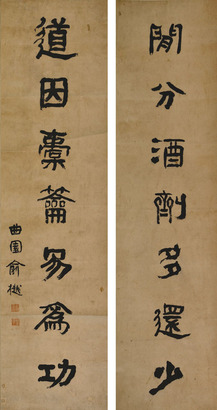 閒分酒劑多還少
道因橐籥易為功
曲園俞樾